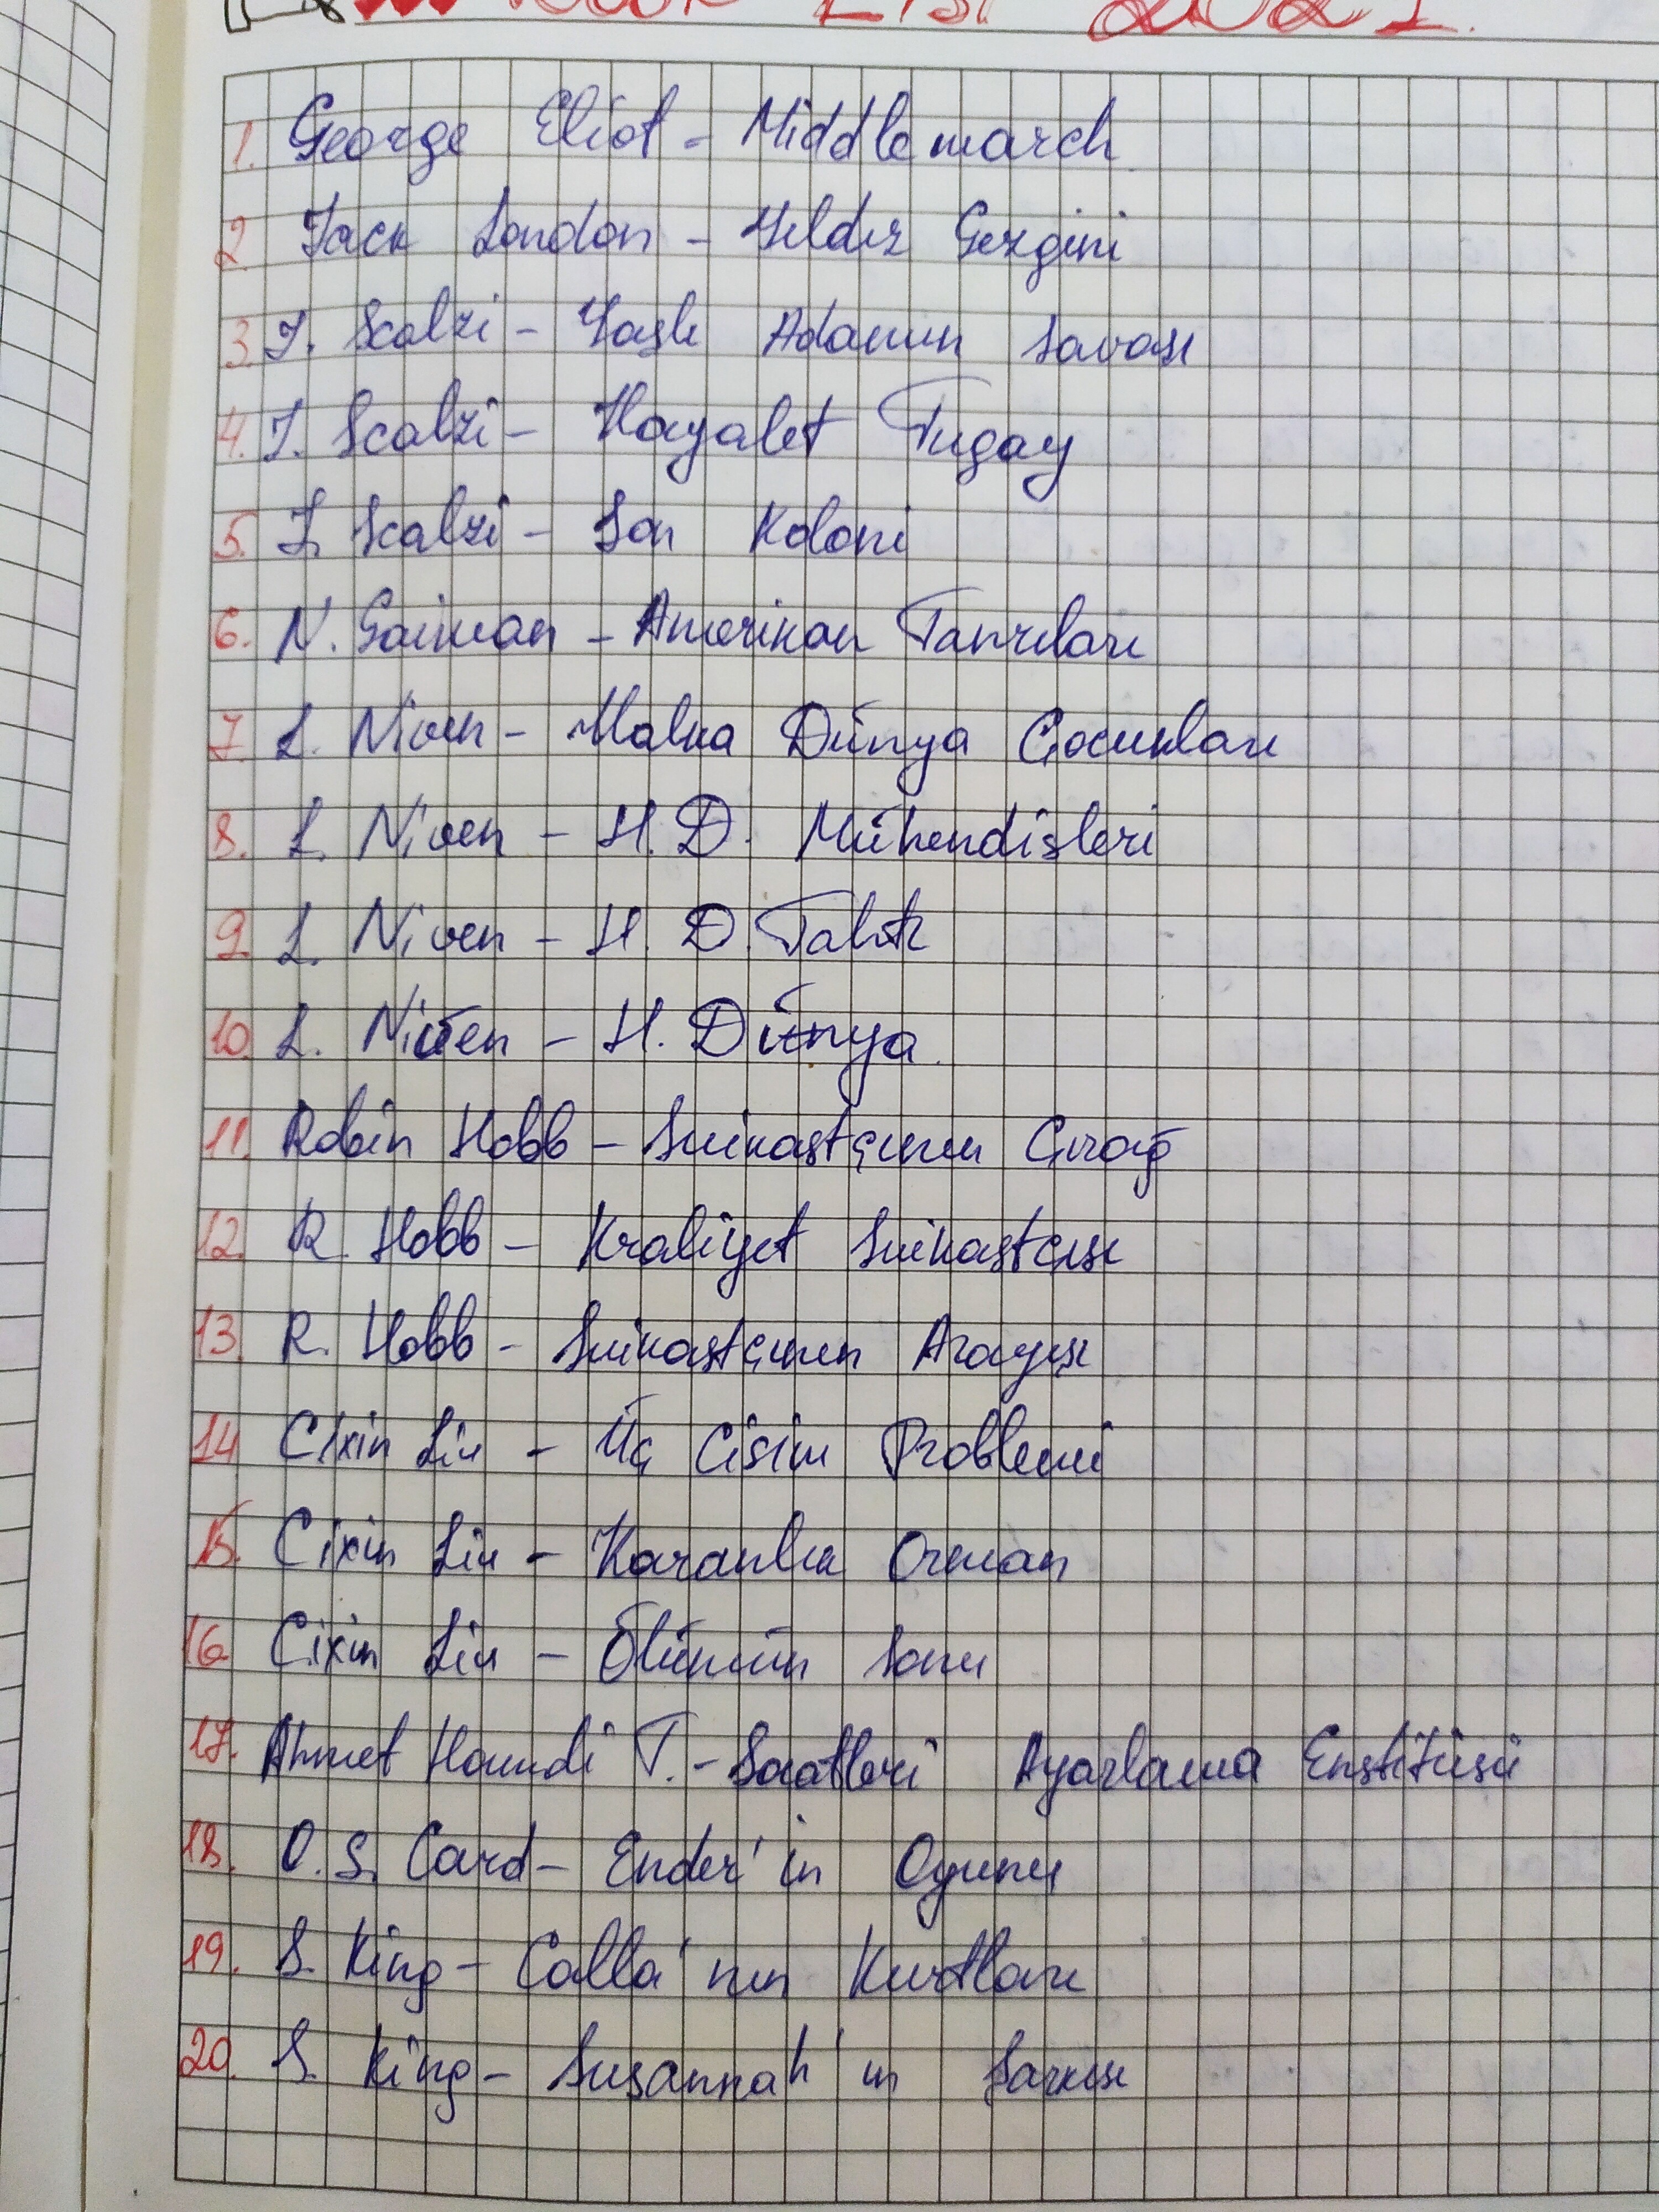 Book List 2021.
1. George Eliot - Middlemarch
2. Jack London - Yıldız Gezgini
3. J. Scalzi - Yaşlı Adamın Savaşı
4. J. Scalzi - Hayalet Tugay
5. J. Scalzi - Son Koloni
6. N. Gaiman - Amerikan Tanrıları
7. L. Niven - Halka Dünya Çocukları
8. L. Niven - H. D. Mühendisleri
9. L. Niven - H. D. Tahtı
10. L. Niven - H. Dünya
11. Robin Hobb - Suikastçının Çırağı
12. R. Hobb - Kraliyet Suikastçısı
13. R. Hobb - Suikastçının Arayışı
14 Cixin Liu - Üç Cisim Problemi
15. Cixin Liu - Karanlık Orman
16. Cixin Liu - Ölümün Sonu
17. Ahmet Hamdi T. - Saatleri Ayarlama Enstitüsü
18. O. S. Card - Ender'in Oyunu
19. S. King - Calla'nın Kurtları
20. S. King - Susannah'ın Şarkısı